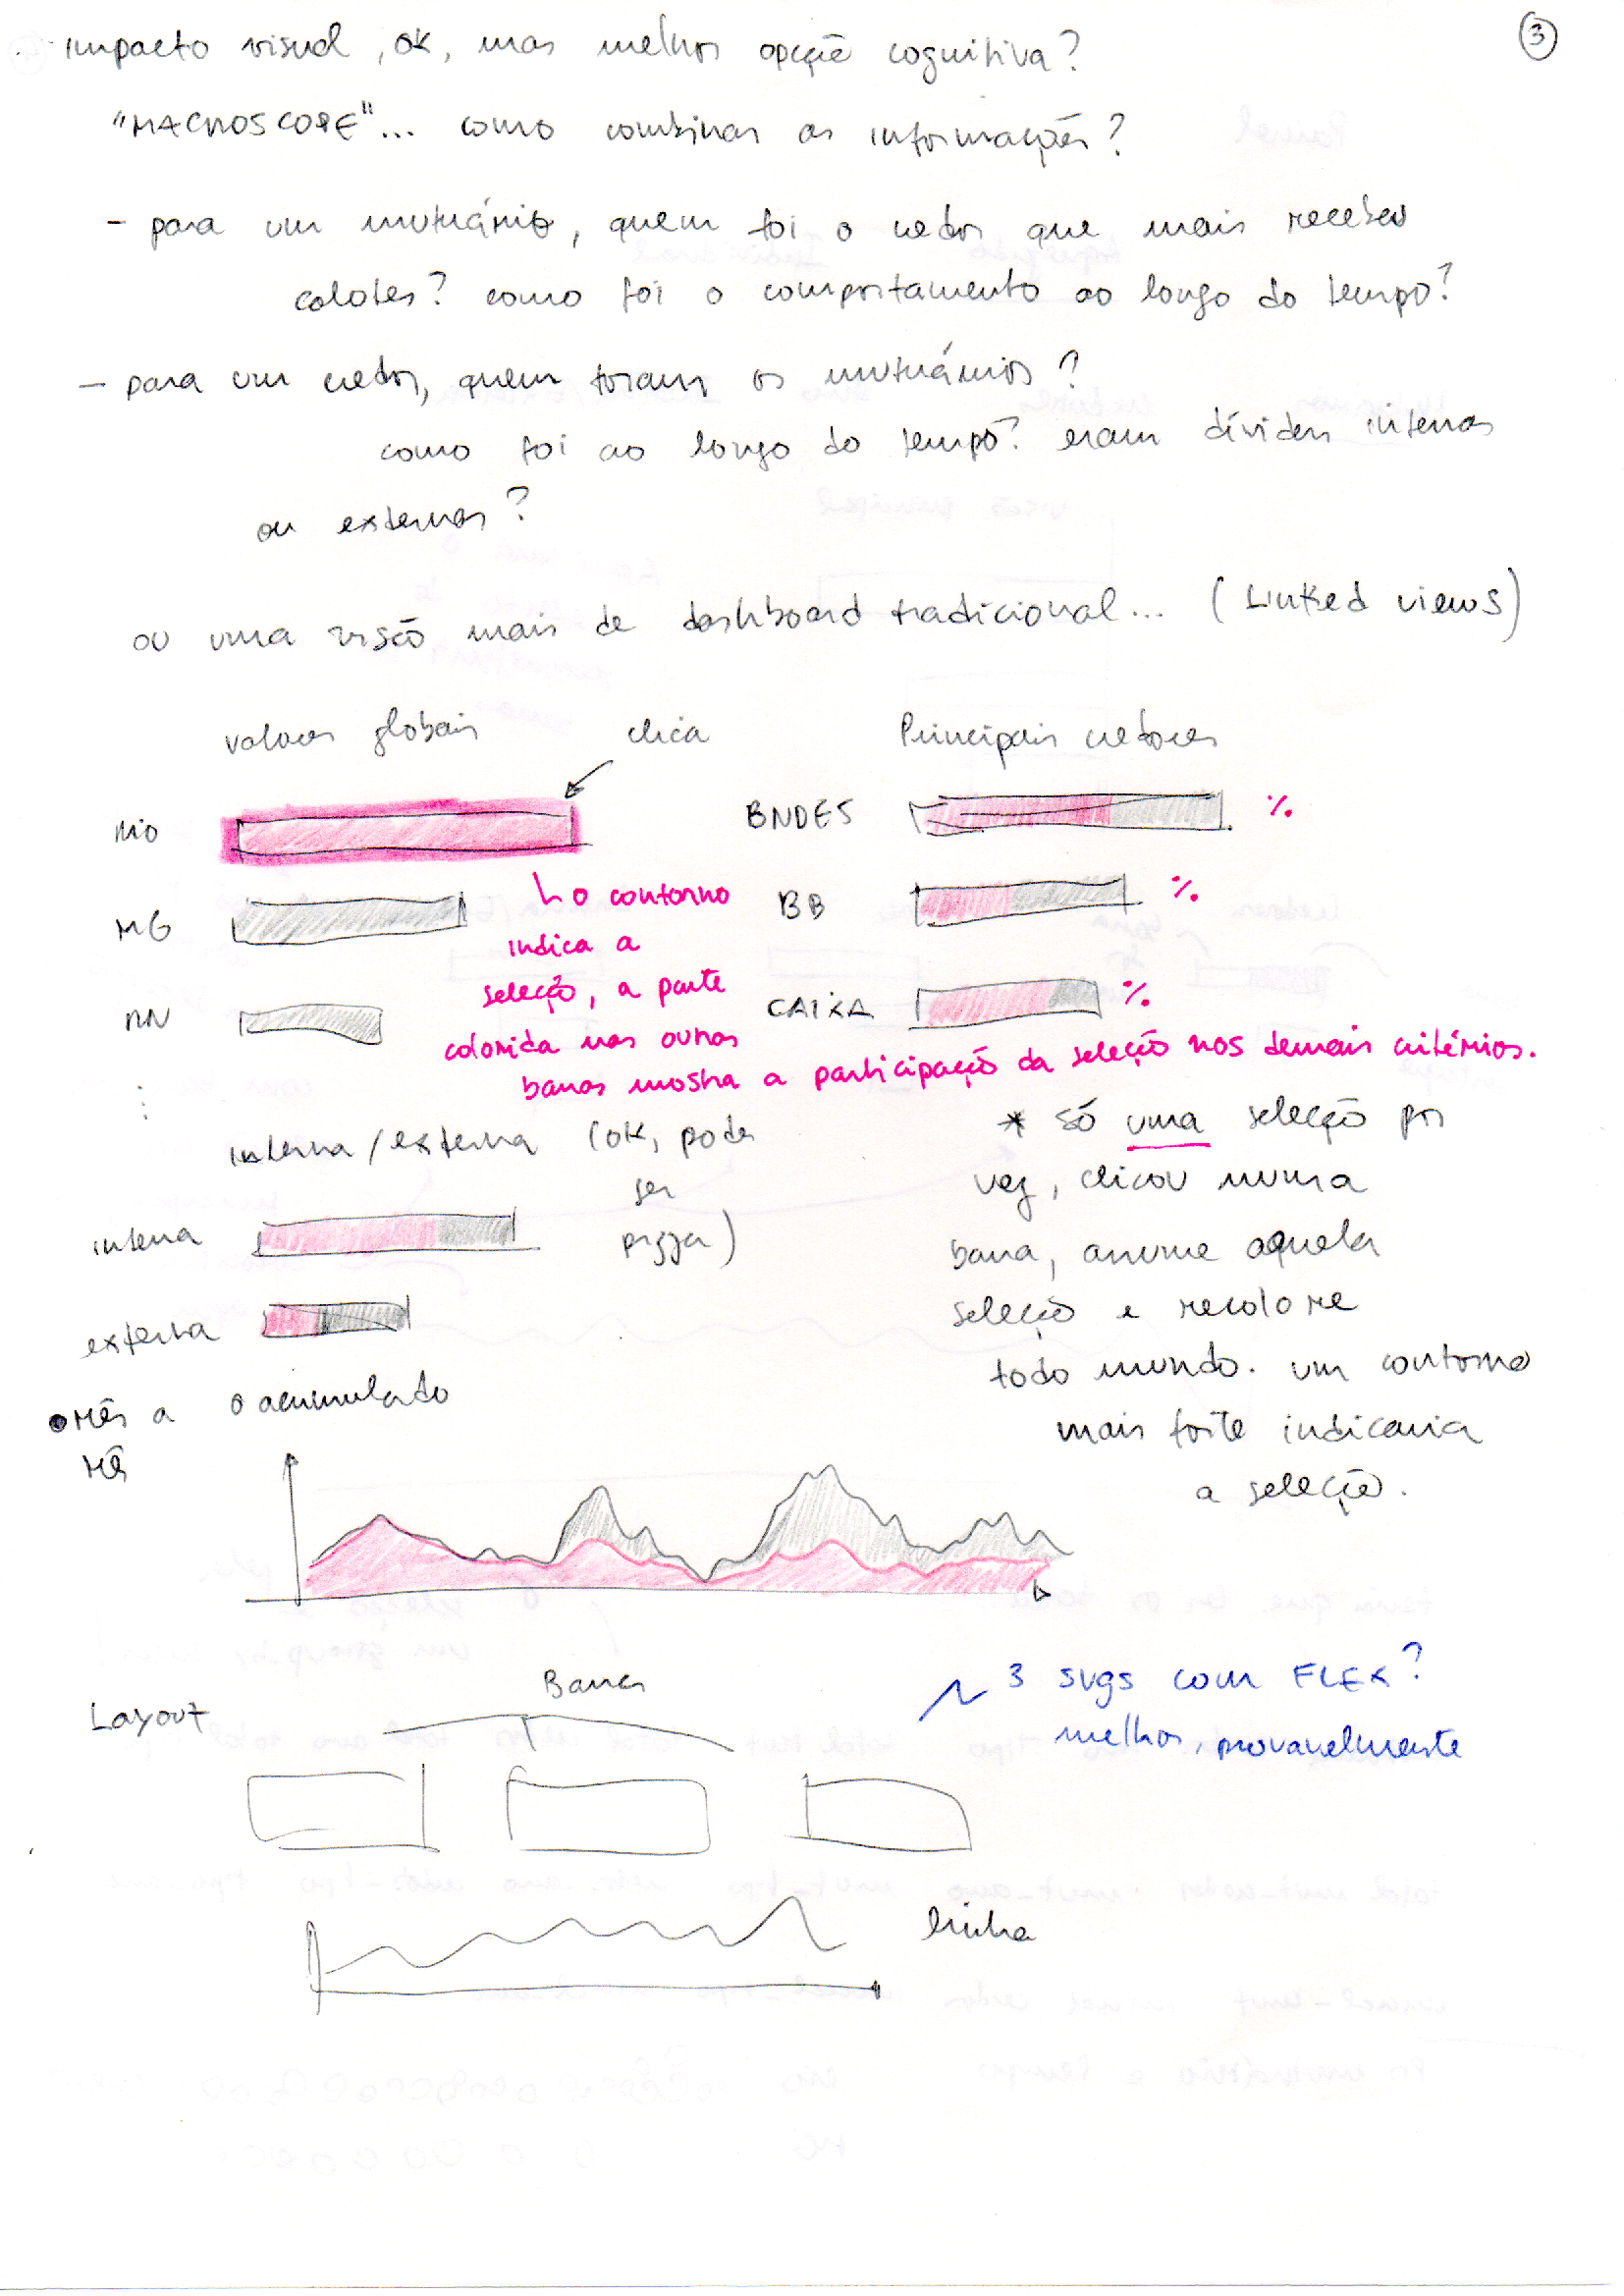 3
impacto visual, ok, mas melhor opção cognitiva?
"MACROSCOPE"... como combinar as informações?
- para um mutuário, quem foi o credor que mais recebeu
calotes? como foi o comportamento ao longo do tempo?
- para um credor, quem foram os mutuários?
como foi ao longo do tempo? eram dívidas internas
ou externas?
ou uma visão mais de dashboard tradicional... (Linked views)
valores globais
clica
Rio
MG
RN
⋮
Principais credores
BNDES %
BB %
CAIXA %
↳ o contorno
indica a
seleção, a parte
colorida nas outras
barras mostra a participação da seleção nos demais critérios.
interna/externa (ok, pode
ser
pizza)
interna
externa
* só uma seleção por
vez, clicou numa
barra, assume aquela
seleção e recolore
todo mundo. um contorno
mais forte indicaria
a seleção.
• Mês a
Mês
o acumulado
Layout
Barras
3 svgs com FLEX?
melhor, provavelmente
linha